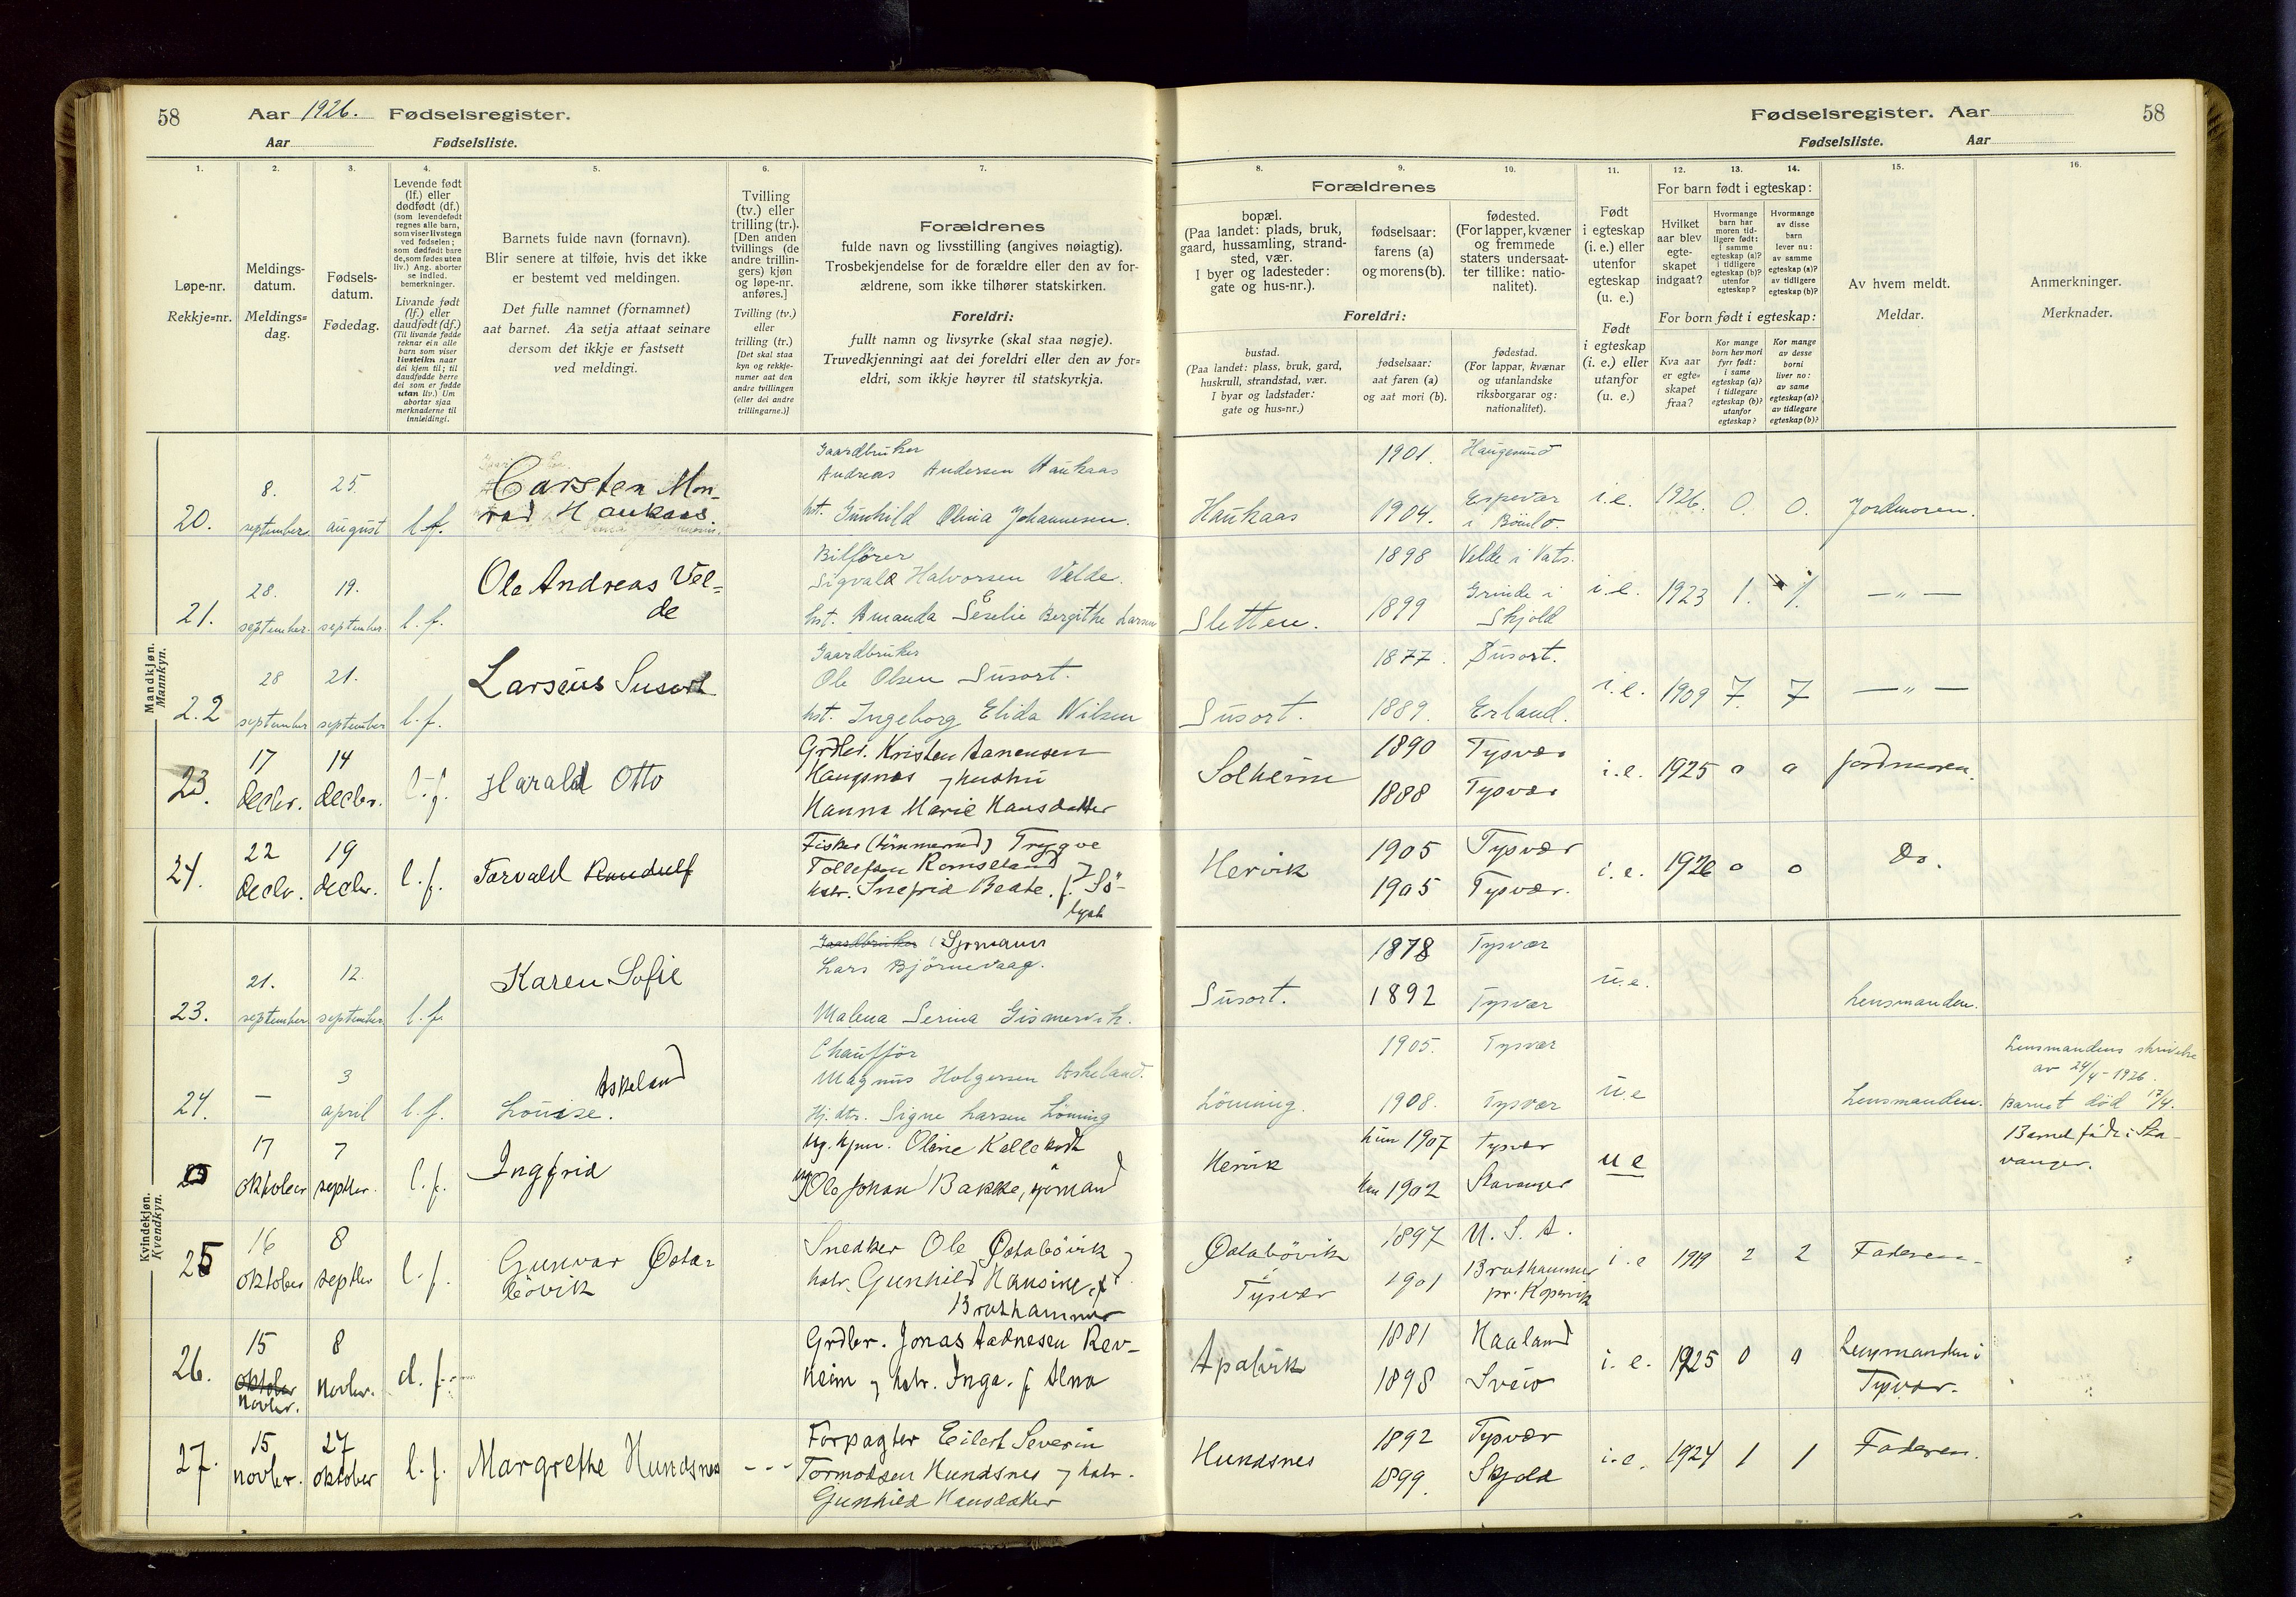 58 Aar 1926. Fødselsregister.
Aar Fødselsliste.
Fødselsregister. Aar 58
Fødselsliste. Aar
1. 2. 3. 4. 5. 6. 7. 8. 9. 10. 11. 12. 13. 14. 15. 16.
Løpe-nr.
Rekkje=nr.
Meldings-
datum.
Meldings=
dag.
Fødsels-
datum.
Fødedag.
Levende født
(lf.) eller
dødfødt (df.)
(som levendefødt
regnes alle barn,
som viser livstegn
ved fødselen;
som dødfødt bare
de, som fødes uten
liv.) Ang. aborter
se indled.
bemerkninger.
Livande født
(lf.) eller
daudfødt (df.)
(Til livande fødde
reknar ein alle
barn som viser
livsteikn naar
dei kjem til; til
daudfødde berre
dei som er fødde
utan liv.) Um
abortar sjaa
merknaderne til
innleidingi.
Barnets fulde navn (fornavn).
Blir senere at tilføie, hvis det ikke
er bestemt ved meldingen.
Det fulle namnet (fornamnet)
aat barnet. Aa setja attaat seinare
dersom det ikkje er fastsett
ved meldingi.
Tvilling
(tv.) eller
trilling (tr.).
[Den anden
tvillings (de
andre trillin-
gers) kjøn
og løpe-nr.
anføres.]
Tvilling (tv.)
eller
trilling (tr.)
[Det skal staa
kyn og rekkje-
numer aat den
andre tvillingen
(eller dei andre
trillingarne.)]
Forældrenes
fulde navn og livsstilling (angives nøiagtig).
Trosbekjendelse for de forældre eller den av for-
ældrene, som ikke tilhører statskirken.
Foreldri:
fullt namn og livsyrke (skal staa nøgje).
Truvedkjenningi aat dei foreldri eller den av for=
eldri, som ikkje høyrer til statskyrkja.
Forældrenes
bopæl.
(Paa landet: plads, bruk,
gaard, hussamling, strand-
sted, vær.
I byer og ladesteder:
gate og hus-nr.).
fødselsaar:
farens (a)
og morens (b).
fødested.
(For lapper, kvæner
og fremmede
staters undersaat-
ter tillike: natio-
nalitet).
Foreldri:
bustad.
(Paa landet: plass, bruk, gard,
huskrull, strandstad, vær.
I byar og ladstader:
gate og hus=nr.)
fødselsaar:
aat faren (a)
og aat mori (b).
fødestad.
(For lappar, kvænar
og utanlandske
riksborgarar og:
nationalitet).
Født
i egteskap
(i. e.) eller
utenfor
egteskap
(u. e.)
Født
i egteskap
(i. e.) eller
utanfor
(u. e.)
For barn født i egteskap:
Hvilket
aar blev
egte-
skapet
indgaat?
Hvormange
barn har
moren tid-
ligere født:
i samme
egteskap (a)?
i tidligere
egteskap (b)?
utenfor
egteskap?
Hvormange
av disse
barn
lever nu:
av samme
egteskap (a)?
av tidligere
egteskap (b)?
For born født i egteskap:
Kva aar
er egte=
skapet
fraa?
Kor mange
born hev mori
fyrr født:
i same
egteskap (a)?
i tidlegare
egteskap (b)?
utanfor
egteskap?
Kor mange
av desse
borni
liver no:
av same
egteskap (a)?
av tidlegare
egteskap (b)?
Av hvem meldt.
Meldar.
Anmerkninger.
Merknader.
Mandkjøn.
Mannkyn.
20. 8. september 25. august l.f. Carsten Mon-
rad Haukaas.
Gaardbruker
Andreas Andersen Haukaas
hst. Gunhild Olina Johannesen.
Haukaas 1901. Haugesund
1904. Espevær
i Bömlo. i.e. 1926. 0. 0. Jordmoren.
21. 28. september. 19. september. l.f. Ole Andreas Vel-
de
Bilfører
Sigvald Halvorsen Velde.
hst. Amanda Seselie Bergithe Larsen
Sletten. 1898 Velde i Vats.
1899 Grinde i
Skjold i.e. 1923 1. 1. — „ —
22 28 september 21. september l.f. Larseus Susort
Gaardbruker
Ole Olsen Susort.
hst. Ingeborg Elida Nilsen
Susort. 1877. Susort.
1889. Erland. i.e. 1909 7. 7 — „ —
23. 17 decbr. 14 decbr. l.f. Harald Otto
Grdbr. Kristen Aanensen
Haugnes og hustru
Hanna Marie Hansdatter
Solheim 1890 Tysvær
1888 Tysvær i.e. 1925 0 0 Jordmoren.
24. 22 decbr. 19 decbr. l.f. Torvald Randulf
Fisker (tømmermd) Trygve
Tollefsen Romseland og
hstr. Snefrid Beate. f. Sö-
Hervik 1905 Tysvær
1905 Tysvær. i.e. 1926 0 0 do.
Kvindekjøn.
Kvendkyn.
23. 21. september 12. september l.f. Karen Sofie
Gaardbruker (Sjømann
Lars Björnevaag.
Malena Serina Gismervik.
Susort. 1878 Tysvær
1892 Tysvær u.e. Lensmanden.
24. — 3 april l.f. Louise. Askeland
Chauffør
Magnus Holgersen Askeland.
Hj. dtr. Signe Larsen Lönning
Lönning. 1905. Tysvær
1908. Tysvær u.e Lensmanden.
Lensmandens skrivelse
av 24/4-1926.
Barnet död 17/4.
17 oktober 7 septbr. l.f. Ingfrid
Ug. kpm. Oline Kallekodt
og Ole Johan Bakke, sjömand
Hervik hun 1907 Tysvær
han 1902 Stavanger u e
Barnet født i Sta-
vanger.
25 16 oktober 8 septbr l.f. Gunvor Østa-
bövik
Snedker Ole Østabövik og
hstr. Gunhild Hansine, f.
Brathammer
Østabövik
i
Tysvær 1897 U.S.A.
1901 Brathammer
pr. Kopervik i.e 1919 2 2 Faderen.
26. 15 oktober
novbr. 8 novbr. d.f.
Grdbr. Jonas Aadnesen Rev-
heim og hstr. Inga. f. Alna
Apalvik 1881 Haaland
1898 Sveio i.e. 1925 0 0 Lensmanden i
Tysvær.
27. 15 novbr. 27 oktober l.f. Margrethe Hundsnes - - -
Forpagter Eilert Severin
Tormodsen Hundsnes og hstr.
Gunhild Hansdatter
Hundsnes 1892 Tysvær
1899. Skjold i.e. 1924 1 1 Faderen.